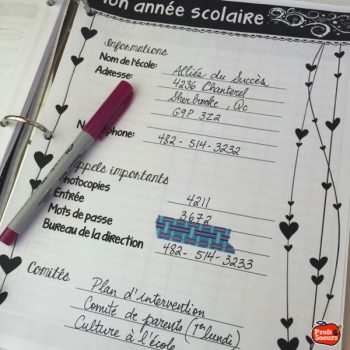 on année scolaire
Informations
Nom de l'école: Alliés du Succès
Adresse: 4236 Chanterel
Sherbrooke, Qc
G9P 3Z2
phone: 482-514-3232
Appels importants
Photocopies 4211
Entrée 3672
Mots de passe
Bureau de la direction 482-514-3233
Comités Plan d'intervention
Comité de parents (1er lundi)
Culture à l'école
Profs
Soeurs